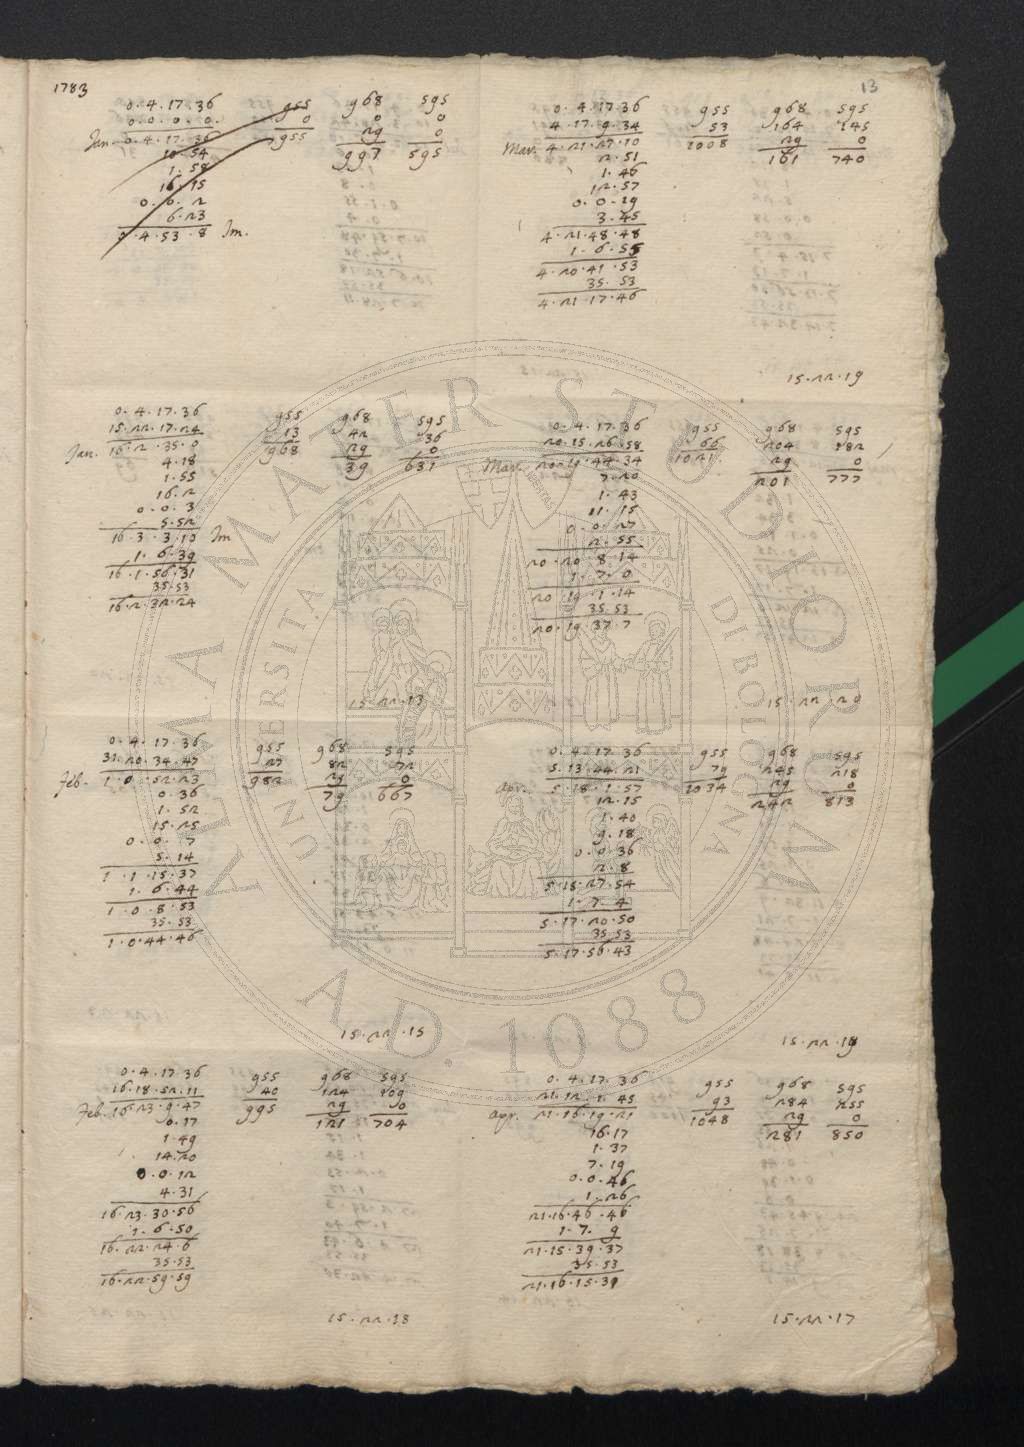 1783
13
0. 4. 17. 36 955 968 595
0. 0. 0. 0. 0 0 0
Jan. 0. 4. 17. 36 955 29 0
10. 54 997 595
1. 58
16. 15
0. 0. 2
6. 23
0. 4. 53. 8 Im.
0. 4. 17. 36 955 968 595
15. 22. 17. 24 13 42 36
Jan. 16. 2. 35. 0 968 29 0
4. 18 39 631
1. 55
16. 2
0. 0. 3
5. 52
16. 3. 3. 10 Im
1. 6. 39
16. 1. 56. 31
35. 53
16. 2. 32. 24
15. 22. 13
0. 4. 17. 36 955 968 595
31. 20. 34. 47 27 82 72
Feb. 1. 0. 52. 23 982 29 0
0. 36 79 667
1. 52
15. 25
0. 0. 7
5. 14
1. 1. 15. 37
1. 6. 44
1. 0. 8. 53
35. 53
1. 0. 44. 46
15. 22. 15
0. 4. 17. 36 955 968 595
16. 18. 52. 11 40 124 109
Feb. 16. 23. 9. 47 995 29 0
0. 17 121 704
1. 49
14. 20
0. 0. 12
4. 31
16. 23. 30. 56
1. 6. 50
16. 22. 24. 6
35. 53
16. 22. 59. 59
15. 22. 18
0. 4. 17. 36 955 968 595
4. 17. 9. 34 53 164 145
Mar. 4. 21. 27. 10 1008 29 0
2. 51 161 740
1. 46
12. 57
0. 0. 19
3. 45
4. 21. 48. 48
1. 6. 55
4. 20. 41. 53
35. 53
4. 21. 17. 46
15. 22. 19
0. 4. 17. 36 955 968 595
20. 15. 26. 58 66 204 182
Mar. 20. 19. 44. 34 1021. 29 0
7. 20 201 777
1. 43
11. 15
0. 0. 27
2. 55
20. 20. 8. 14
1. 7. 0
20. 19. 1. 14
35. 53
20. 19. 37. 7
15. 22. 20
0. 4. 17. 36 955 968 595
5. 13. 44. 21 79 245 218
apr. 5. 18. 1. 57 1034 29 0
12. 15 242 813
1. 40
9. 18
0. 0. 36
2. 8
5. 18. 27. 54
1. 7. 4
5. 17. 20. 50
35. 53
5. 17. 56. 43
15. 22. 19
0. 4. 17. 36 955 968 595
21. 12. 1. 45 93 284 255
apr. 21. 16. 19. 21 1048 29 0
16. 17 281 850
1. 37
7. 19
0. 0. 46
1. 26
21. 16. 46. 46
1. 7. 9
21. 15. 39. 37
35. 53
21. 16. 15. 30
15. 22. 17
ALMA MATER STUDIORUM
UNIVERSITAS DI BOLOGNA
A.D. 1088